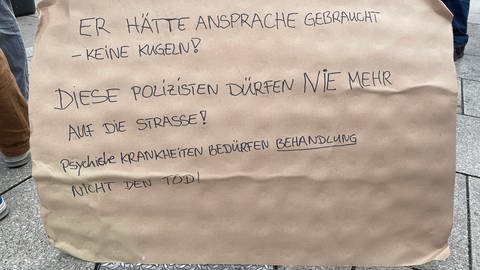 ER HÄTTE ANSPRACHE GEBRAUCHT
– KEINE KUGELN!
DIESE POLIZISTEN DÜRFEN NIE MEHR
AUF DIE STRASSE!
PSYCHISCHE KRANKHEITEN BEDÜRFEN BEHANDLUNG
NICHT DEN TOD!